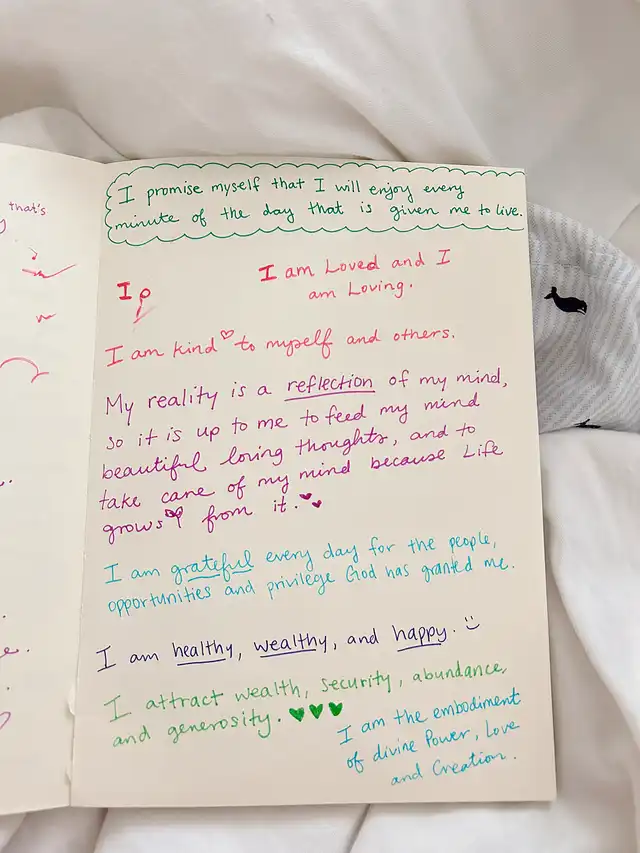 that's
I promise myself that I will enjoy every
minute of the day that is given me to live.
I am Loved and I
am Loving.
I p
I am kind to myself and others.
My reality is a reflection of my mind,
so it is up to me to feed my mind
beautiful loving thoughts, and to
take care of my mind because Life
grows from it.
I am grateful every day for the people,
opportunities and privilege God has granted me.
I am healthy, wealthy, and happy. :)
I attract wealth, security, abundance,
and generosity.
I am the embodiment
of divine Power, Love
and Creation.